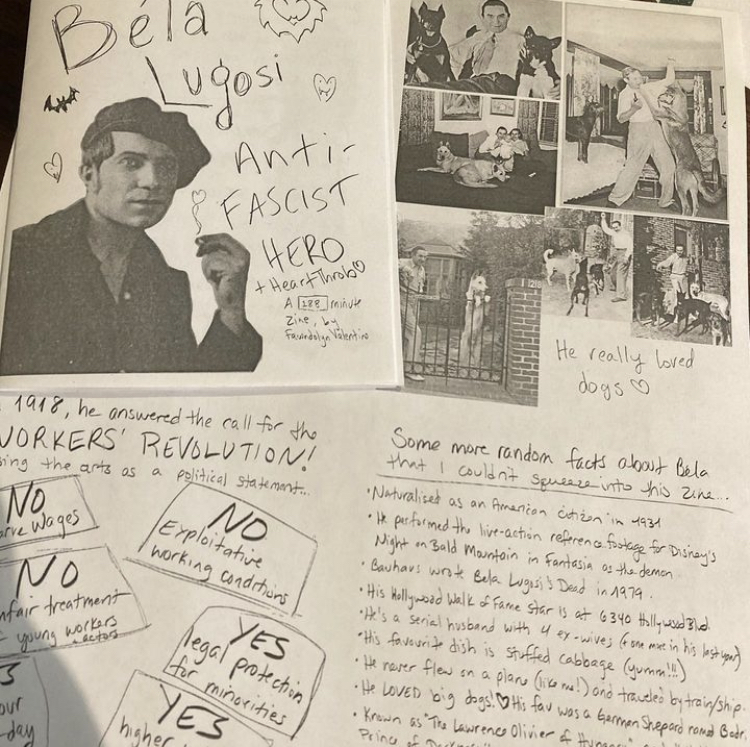 Béla
Lugosi
Anti-
FASCIST
HERO
+ HeartThrob
A 188 minute
Zine, by
Fawndolyn Valentine
He really loved
dogs
1918, he answered the call for the
WORKERS' REVOLUTION!
the arts as a political statement...
NO
wages
NO
Exploitative
working conditions
NO
treatment
young workers
YES
legal protection
for minorities
YES
higher
day
Some more random facts about Béla
that I couldn't squeeze into this zine...
• Naturalised as an American citizen in 1931
• He performed the live-action reference footage for Disney's
Night on Bald Mountain in Fantasia as the demon.
• Bauhaus wrote Bela Lugosi's Dead in 1979.
• His Hollywood Walk of Fame Star is at 6340 Hollywood Blvd.
• He's a serial husband with 4 ex-wives (+ one more in his last year)
• His favourite dish is stuffed cabbage (yumm!!!)
• He never flew on a plane (like me!) and traveled by train/ship.
• He LOVED big dogs! His fav was a German Shepard named Bodri
• Known as "The Lawrence Olivier of
Prince of